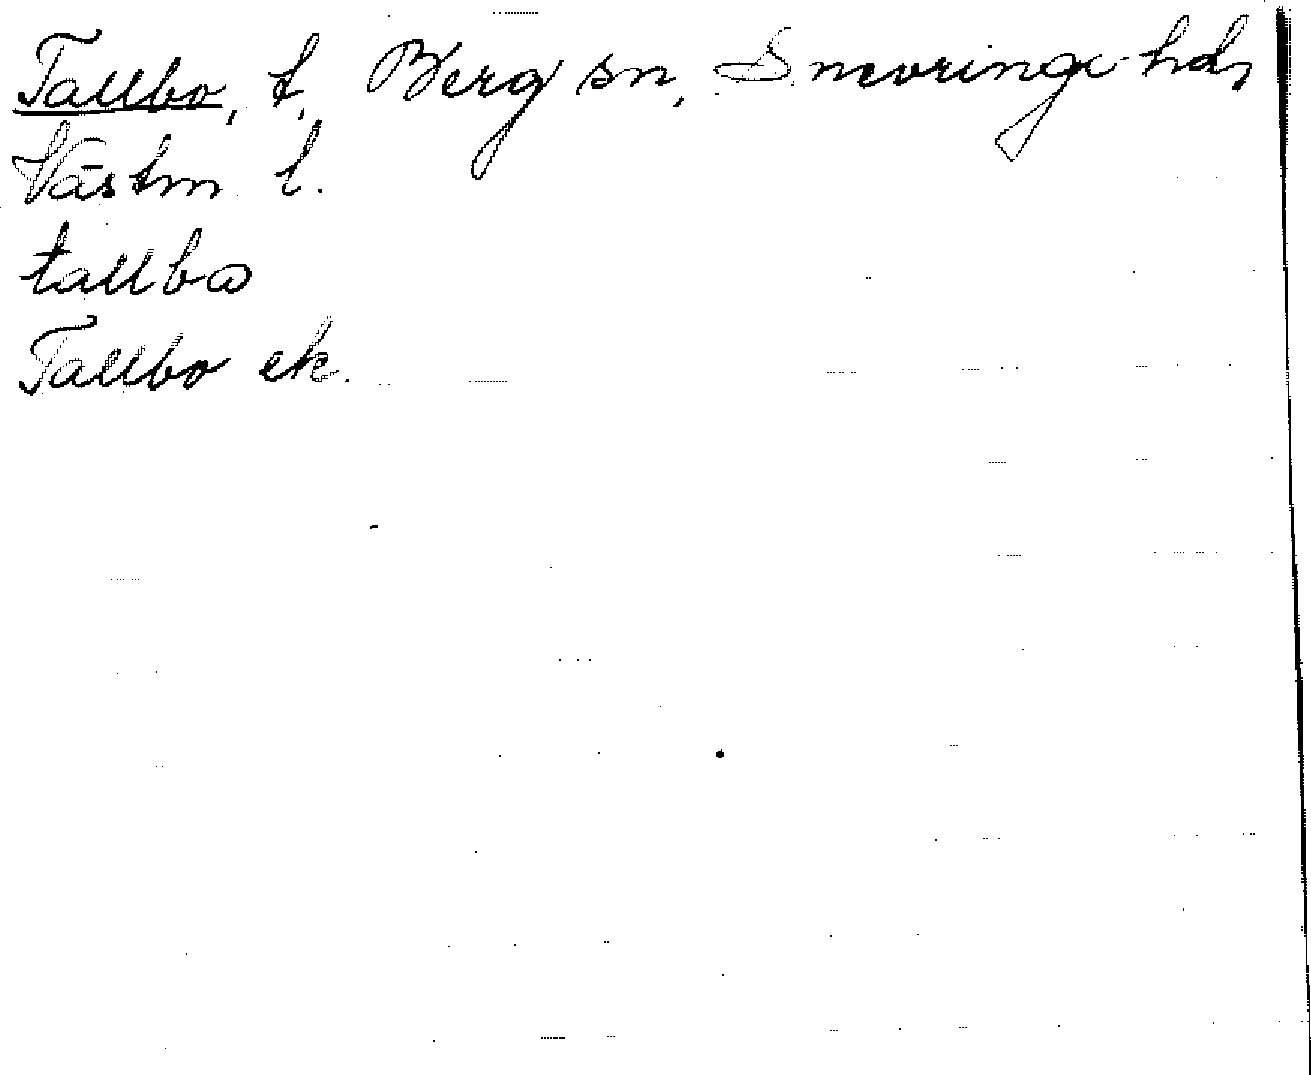 Tallbo, t, Berg sn, Snevringe hd,
Västm l.
tallbω
Tallbo ek.